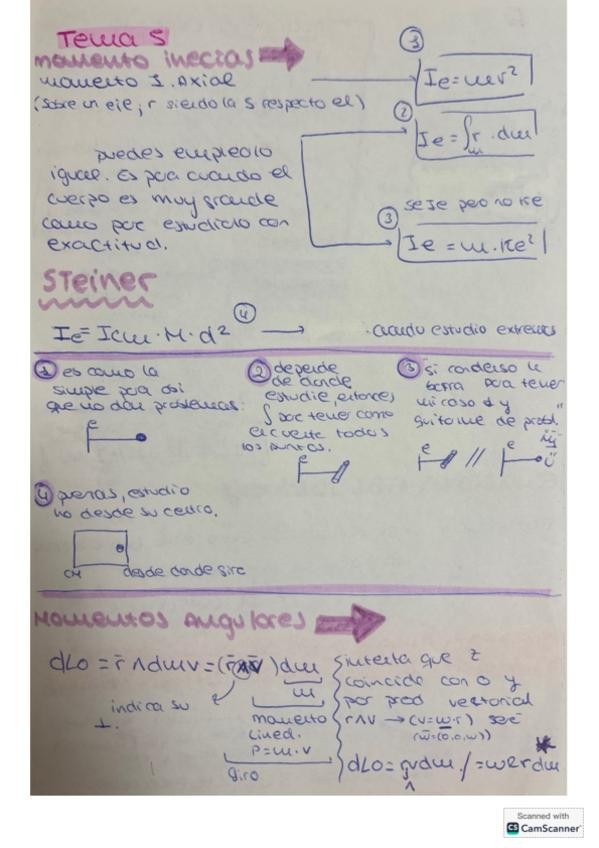 Tema 5
momento inercias
momento I. Axial
(sobre un eje, r siendo la S respecto el)
① Ie = mr²
② Ie = ∫m r · dm
puedes emplearlo
igual. Es para cuando el
cuerpo es muy grande
como para estudiarlo con
exactitud.
se Ie pero no Ke
③ Ie = m · Ke²
Steiner
Ie = Icm · M · d² ④ → cuando estudio extremos
① es como la
simple para así
que no dan problemas.
e
② depende
de donde
estudie, entonces
∫ por tener como
en cuenta todos
los puntos.
e
③ si condenso la
barra para tener
mi caso 1 y
quitarme de probl.
e // e
④ piensas, estudio
no desde su centro.
CM desde donde gira
Momentos Angulares
dLo = r̄ ∧ dm v = (r̄ ∧ v̄) dm
m
indica su
⊥.
momento
lineal.
P = m · v
giro
interesa que z
coincida con o y
por prod vectorial
r ∧ v → (v = w · r) será
(w̄ = (0,0,w))
dLo = r v dm / = w e r dm
∧
Scanned with
CS CamScanner